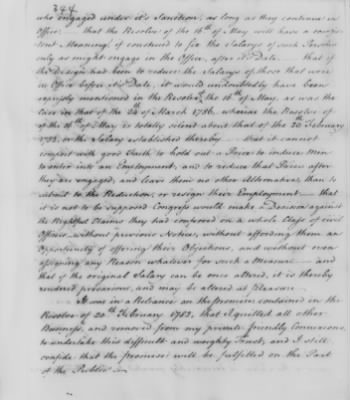 344
who engaged under it's Sanction, as long as they continue in
Office; that the Resolve of the 16th of May will have a consis-
tent Meaning, if construed to fix the Salarys of such Persons
only as might engage in the Office, after it's Date — that if
the Design had been to reduce the Salarys of those that were
in Office before it's Date, it would undoubtedly have been
expressly mentioned in the Resolve of the 16th of May, as was the
Case in that of the 24th of March 1786. whereas the Resolve of
of the 16th of May is totally silent about that of the 20th February
1782. or the Salary established thereby — that it cannot
comport with good Faith to hold out a Price to induce Men
to enter into an Employment, and to reduce that Price after
they are engaged, and leave them no other Alternative, than to
submit to the Reduction, or resign their Employment — that
it is not to be supposed Congress would make a Decision against
the Rightful Claims they had conferred on a whole Class of civil
Officers without previous Notice, without affording them an
Opportunity of offering their Objections, and without even
assigning any Reason whatever for such a Measure — and
that if the original Salary can be once altered, it is thereby
rendered precarious, and may be altered at Pleasure.
It was in a Reliance on the promise contained in the
Resolve of 20th February 1782. that I quitted all other
Business, and removed from my private friendly Connexions,
to undertake this difficult and weighty Trust, and I still
confide that the promises will be fulfilled on the Part
of the Public —